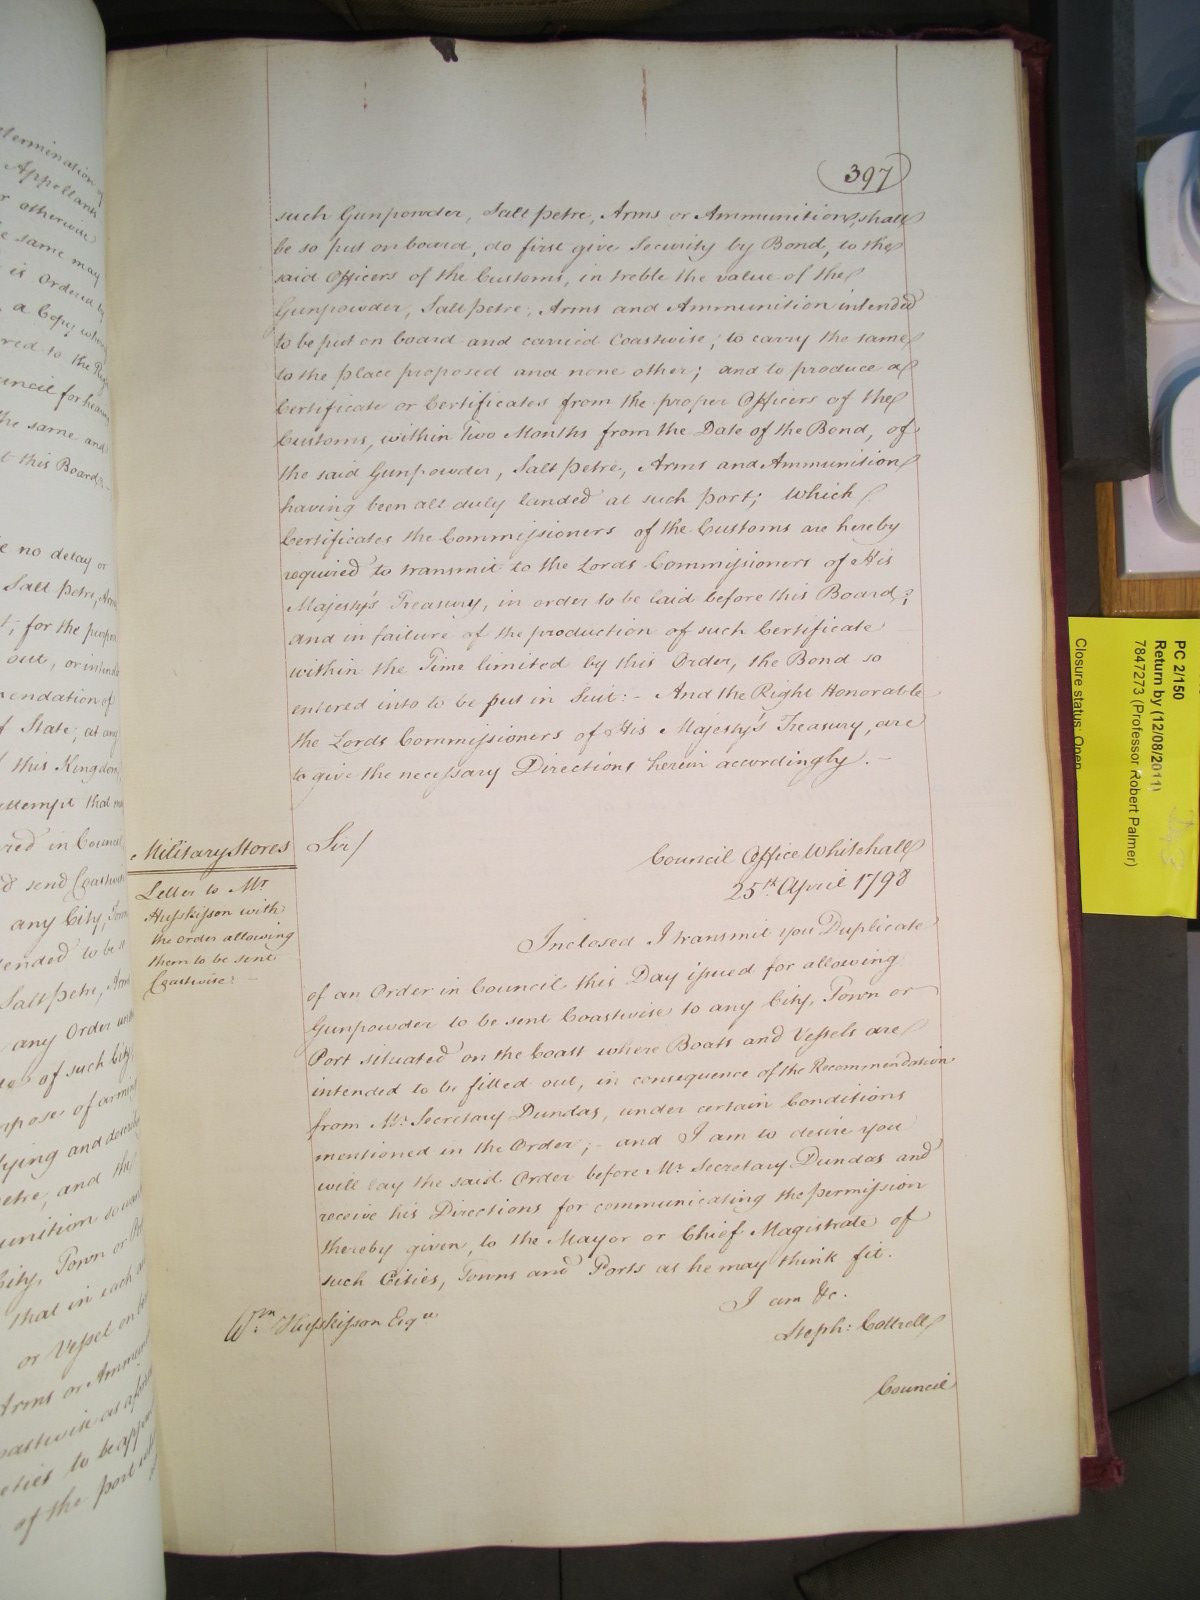 termination of
Appellants
r otherwise
e same may
is Ordered by
a Copy whereof
red to the Right
uncil for hearing
the same and
t this Board. -
e no delay or
Salt petre, Arms
t, for the purpose
out, or intended
endation of
f State, at any
this Kingdom
attempt that may
red in Council
d send Coastwise
any City, Town
ended to be so
Salt petre, Arms
any Order
of such City
purpose of arming
fying and
petre, and the
unition so
City, Town or Port
that in each
or Vessel on board
Arms or Ammunition
oastwise as aforesaid
to be app
of the port
397
such Gunpowder, Salt petre, Arms or Ammunition, shall
be so put on board, do first give Security by Bond, to the
said Officers of the Customs, in treble the value of the
Gunpowder, Salt petre, Arms and Ammunition intended
to be put on board and carried Coastwise, to carry the same
to the place proposed and none other; and to produce a
Certificate or Certificates from the proper Officers of the
Customs, within Two Months from the Date of the Bond, of
the said Gunpowder, Salt petre, Arms and Ammunition
having been all duly landed at such port; Which
Certificates the Commissioners of the Customs are hereby
required to transmit to the Lords Commissioners of His
Majesty's Treasury, in order to be laid before this Board;
and in failure of the production of such Certificate
within the Time limited by this Order, the Bond so
entered into to be put in Suit: - And the Right Honorable
the Lords Commissioners of His Majesty's Treasury, are
to give the necessary Directions herein accordingly. -
Military Stores
Letter to Mr.
Husskisson with
the order allowing
them to be sent
Coastwise. -
Sir/
Council Office Whitehall
25th April 1798
Inclosed I transmit you Duplicate
of an Order in Council this Day issued for allowing
Gunpowder to be sent Coastwise to any City, Town or
Port situated on the Coast where Boats and Vessels are
intended to be fitted out, in consequence of the Recommendation
from Mr. Secretary Dundas, under certain Conditions
mentioned in the Order; - and I am to desire you
will lay the said Order before Mr. Secretary Dundas and
receive his Directions for communicating the permission
thereby given, to the Mayor or Chief Magistrate of
such Cities, Towns and Ports as he may think fit.
I am &c.
Steph: Cottrell
Wm. Husskisson Esqre
Council
PC 2/150
Return by (12/08/2011)
7847273 (Professor Robert Palmer)
Closure status: Open